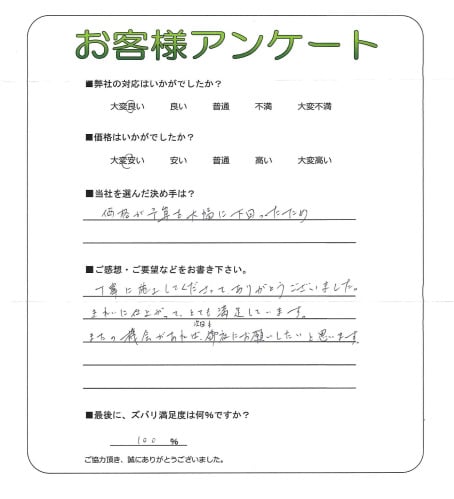 お客様アンケート
■弊社の対応はいかがでしたか？
大変良い 良い 普通 不満 大変不満
■価格はいかがでしたか？
大変安い 安い 普通 高い 大変高い
■当社を選んだ決め手は？
価格が予算を大幅に下回ったため
■ご感想・ご要望などをお書き下さい。
丁寧に施工してくださってありがとうございました。
きれいに仕上がって、とても満足しています。
次回も
またの機会があれば、御社にお願いしたいと思います。
■最後に、ズバリ満足度は何%ですか？
100 %
ご協力頂き、誠にありがとうございました。